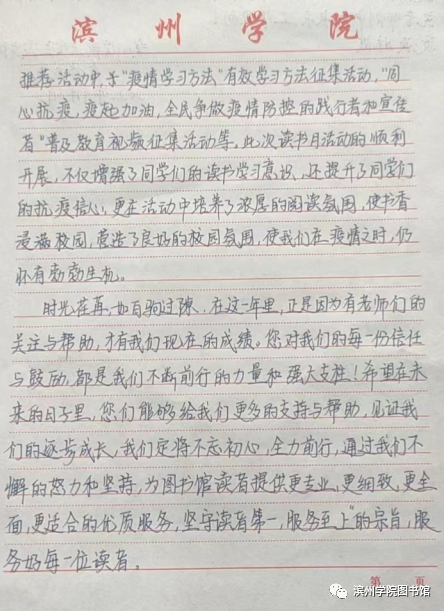 滨州学院
推荐活动中,于"疫情学习方法"有效学习方法征集活动,"同
心抗疫,疫起加油,全民争做疫情防控的践行者和宣传
者"普及教育视频征集活动等,此次读书月活动的顺利
开展,不仅增强了同学们的读书学习意识,还提升了同学们
的抗疫信心,更在活动中培养了浓厚的阅读氛围,使书香
漫满校园,营造了良好的校园氛围,使我们在疫情之时,仍
怀有勃勃生机。
时光荏苒,如白驹过隙,在这一年里,正是因为有老师们的
关注与帮助,才有我们现在的成绩。您对我们的每一份信任
与鼓励,都是我们不断前行的力量和强大支柱!希望在未
来的日子里,您们能够给我们更多的支持与帮助,见证我
们的逐步成长,我们定将不忘初心,全力前行,通过我们不
懈的努力和坚持,为图书馆读者提供更专业,更细致,更全
面,更适合的优质服务,坚守读者第一,服务至上"的宗旨,服
务好每一位读者。
第 页
滨州学院图书馆